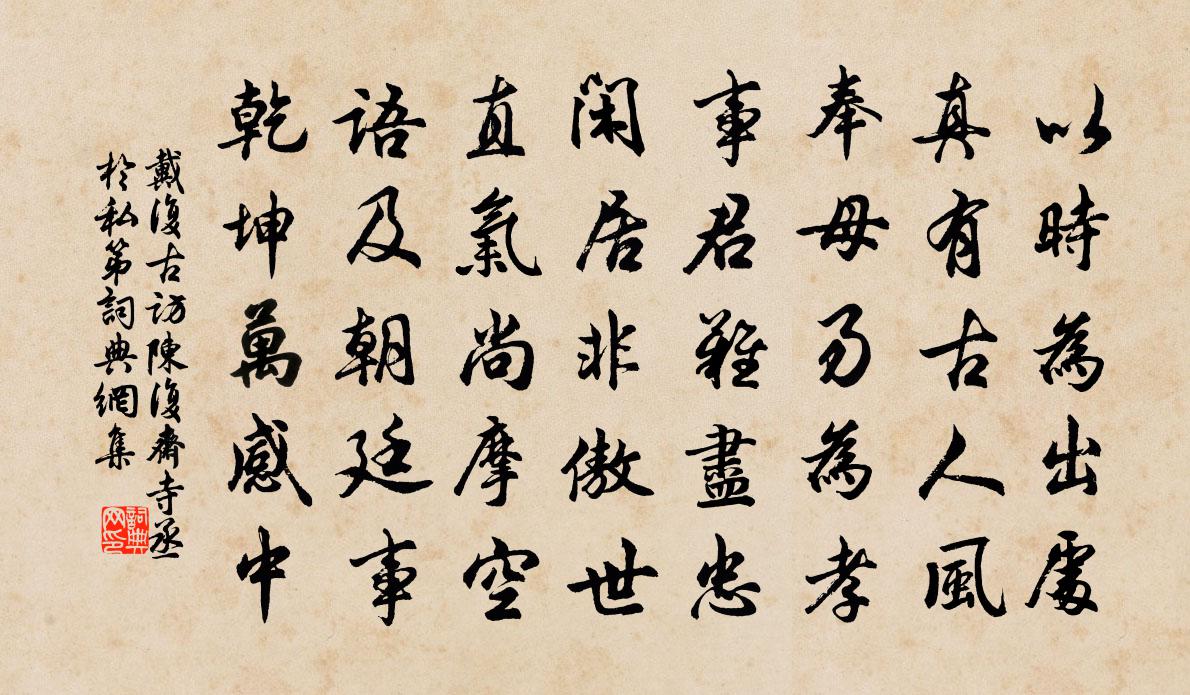 以時為出處
真有古人風
奉母易為孝
事君難盡忠
閑居非傲世
直氣尚摩空
語及朝廷事
乾坤萬感中
戴復古訪陳復齋寺丞
於私第詞典網集
詞典网印